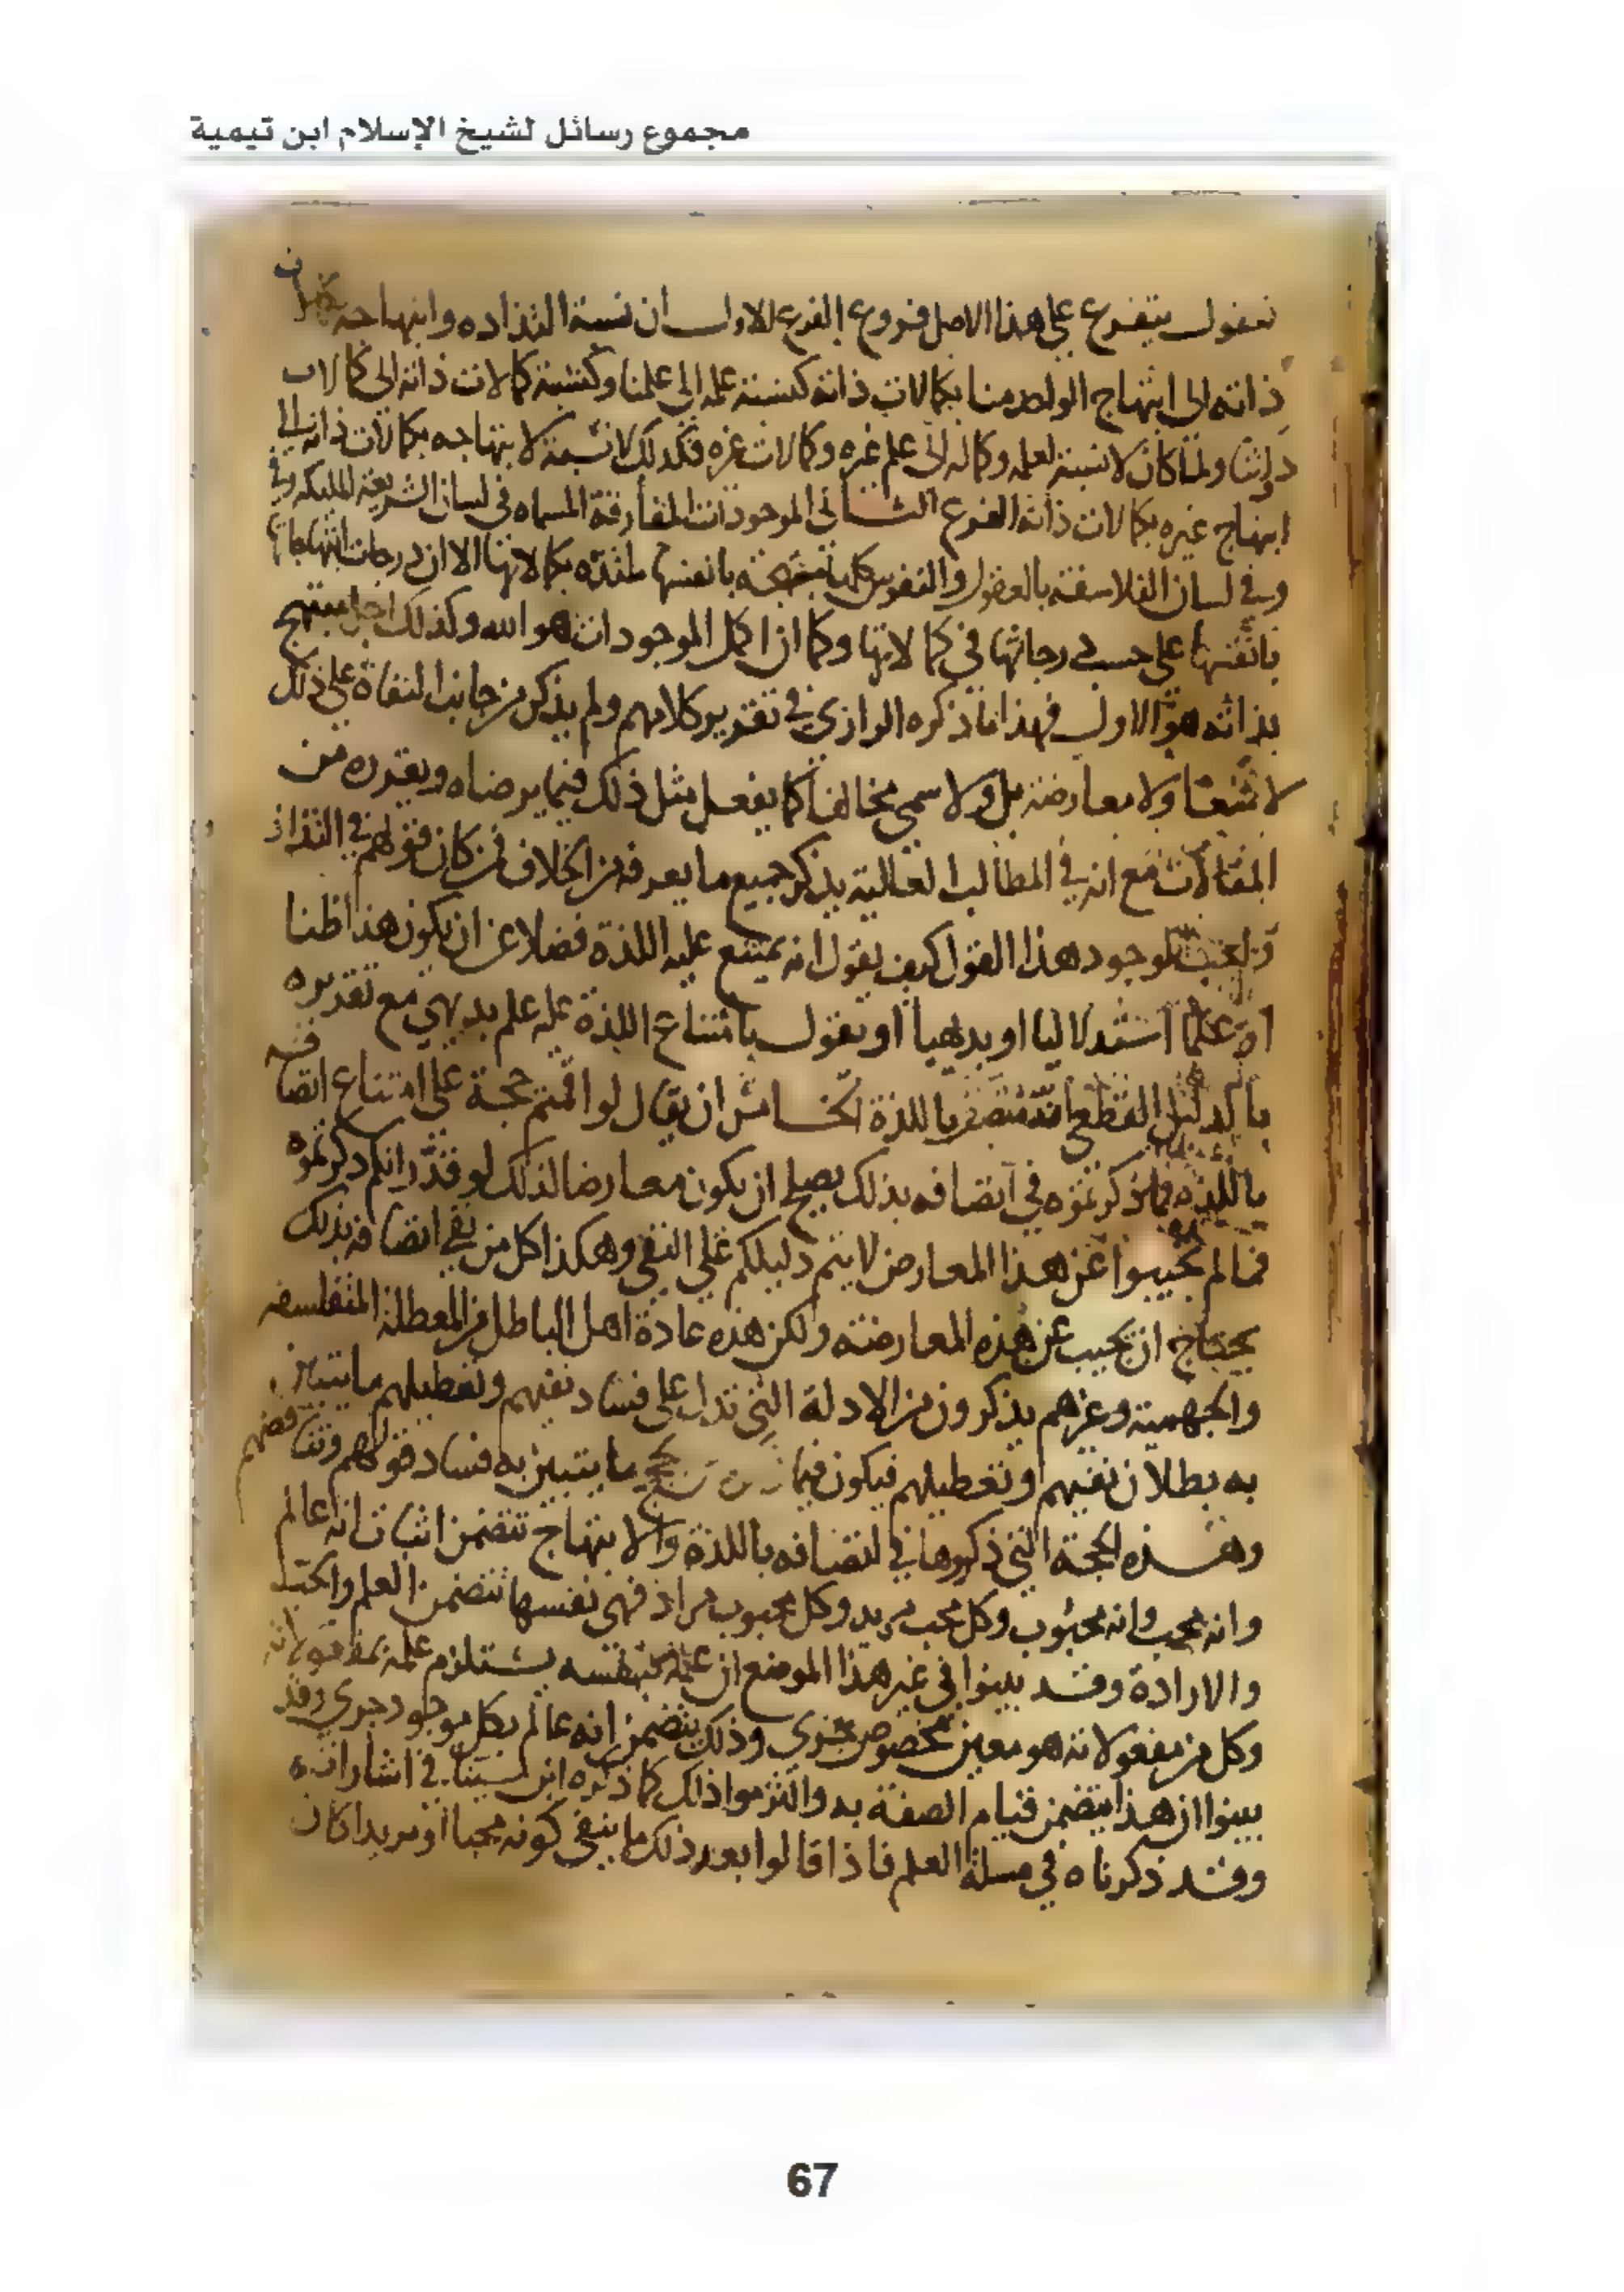 مجموع رسائل لشيخ الإسلام ابن تيمية
فنقول يتفرع على هذا الاصل فروع الفرع الاول ان نسبة التذاذه وابتهاجه بكمالات
ذاته الى ابتهاج الواحد منا بكمالات ذاته كنسبة علمه الى علمنا وكنسبة كمالات ذاته الى كمالات
ذواتنا ولما كان لا نسبة لعلمه وكماله الى علم غيره وكمالات غيره فكذلك لا نسبة لابتهاجه بكمالات ذاته الى
ابتهاج غيره بكمالات ذاته الفرع الثاني الموجودات المفارقة المسماه في لسان الشريعة بالمليكه وفي
وفي لسان الفلاسفة بالعقول والنفوس كلها مبتهجة بانفسها ملتذه بكمالاتها الا ان درجات ابتهاجاتها
بانفسها على حسب درجاتها في كمالاتها وكما ان اكمل الموجودات هو الله وكذلك اجل مبتهج
بذاته هو الاول فهذا ما ذكره الرازي في تقرير كلامهم ولم يذكر من جانب النفاة على ذلك
لا منعا ولا معارضة بل ولا سمى مخالفا كما يفعل مثل ذلك فيما يرضاه ويقرره من
المقالات مع انه في المطالب العالية يذكر جميع ما يعرفه من الخلاف فمن كان قولهم في التذاذ
لوجود هذا القول كيف يقول انه يمتنع عليه اللذة فضلا عن ان يكون هذا ظنا
او علما استدلاليا او بديهيا او يقول بامتناع اللذة عليه علم بديهي مع تقريره
بالدليل القطعي انه متصف باللذة الخامس ان يقال لو اقمتم حجة على امتناع اتصافه
باللذة فما ذكرتموه في اتصافه بذلك يصلح ان يكون معارضا لذلك لو قدر انكم ذكرتموه
فما لم تجيبوا عن هذا المعارض لا يتم دليلكم على النفي وهكذا كل من نفى اتصافه بذلك
يحتاج ان يجيب عن هذه المعارضة ولكن هذه عادة اهل الباطل من المعطلة المتفلسفه
والجهمية وغيرهم يذكرون من الادلة التي تدل على فساد نفيهم وتعطيلهم ما يتبين
به بطلان نفيهم وتعطيلهم فيكون فيما ما يتبين به فساد قولهم وتناقضهم
وهذه الحجة التي ذكروها في اتصافه باللذة والابتهاج تتضمن اثبات انه عالم
وانه محب وانه محبوب وكل محب مريد وكل محبوب مراد فهي نفسها تتضمن العلم والمحبة
والارادة وقد بينوا في غير هذا الموضع ان علمه بنفسه يستلزم علمه بمفعولاته
وكل من مفعولاته هو معين مخصوص جزي وذلك يتضمن انه عالم بكل موجود جزي وقد
بينوا ان هذا يتضمن قيام الصفة به والتزموا ذلك كما ذكره ابن سينا في اشاراته
وقد ذكرناه في مسلة العلم فاذا قالوا بعد ذلك ما ينفى كونه محبا او مريدا كان
67